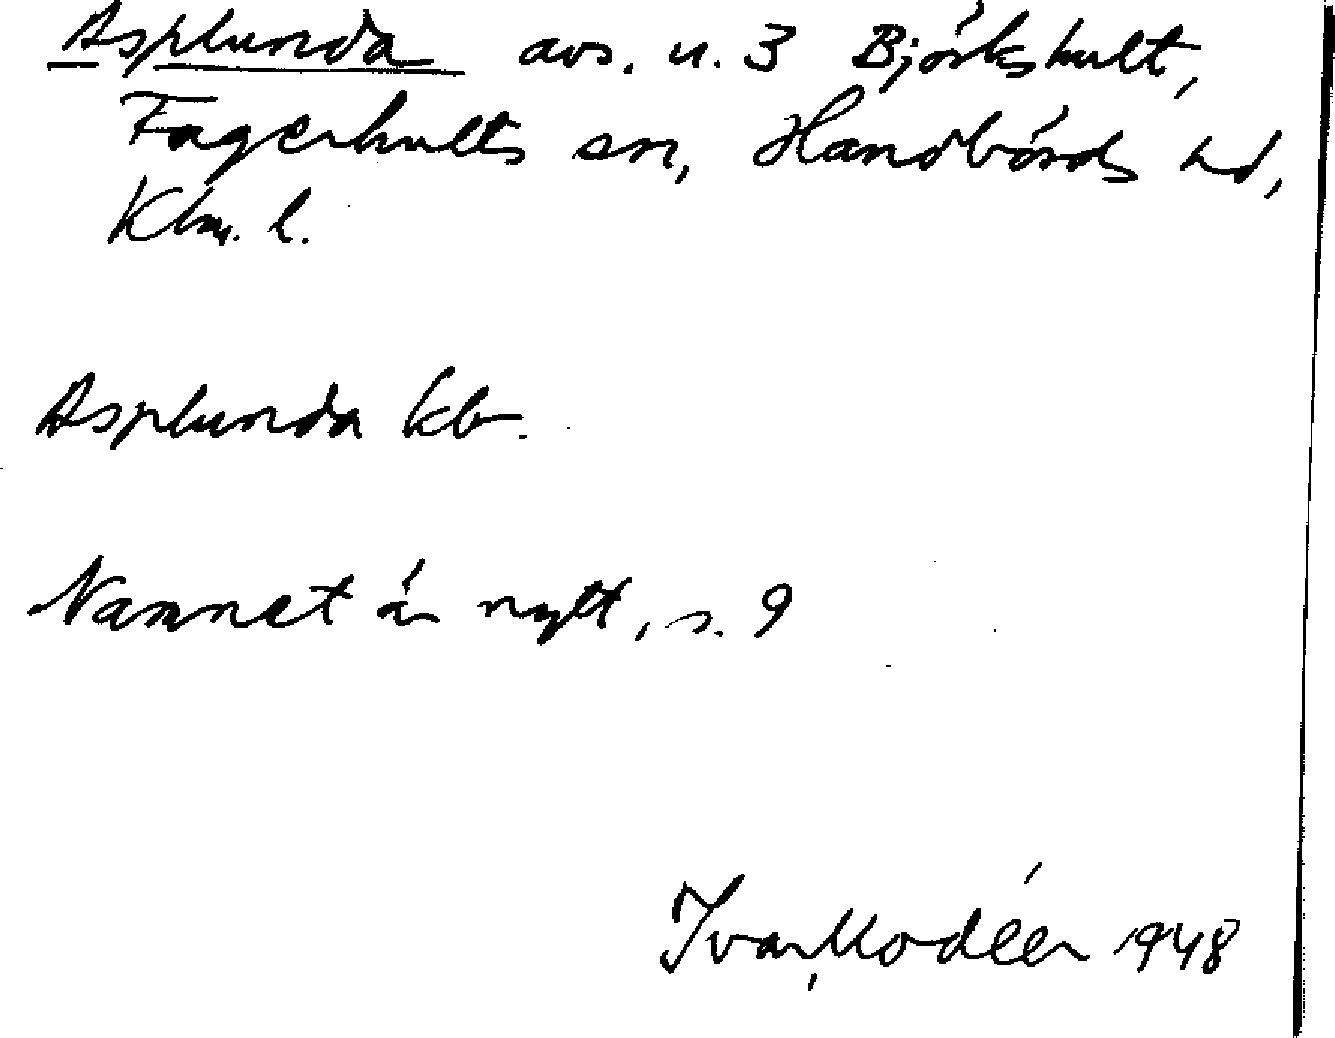 Asplunda avs. u. 3 Björkshult,
Fagerhults sn, Handbörds hd,
Klm. l.
Asplunda kbr.
Namnet är nytt, s. 9
Ivar Modéer 1948